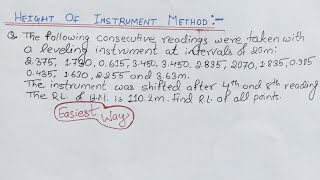 HEIGHT OF INSTRUMENT METHOD:-
Q. The following consecutive readings were taken with
a leveling instrument at intervals of 20m:
2.375, 1.730, 0.615, 3.450, 3.450, 2.835, 2.070, 1.835, 0.985
0.435, 1.630, 2.255 and 3.63m.
The instrument was shifted after 4th and 8th reading
The R.L. of B.M. is 110.2m. Find R.L. of all points.
Easiest Way